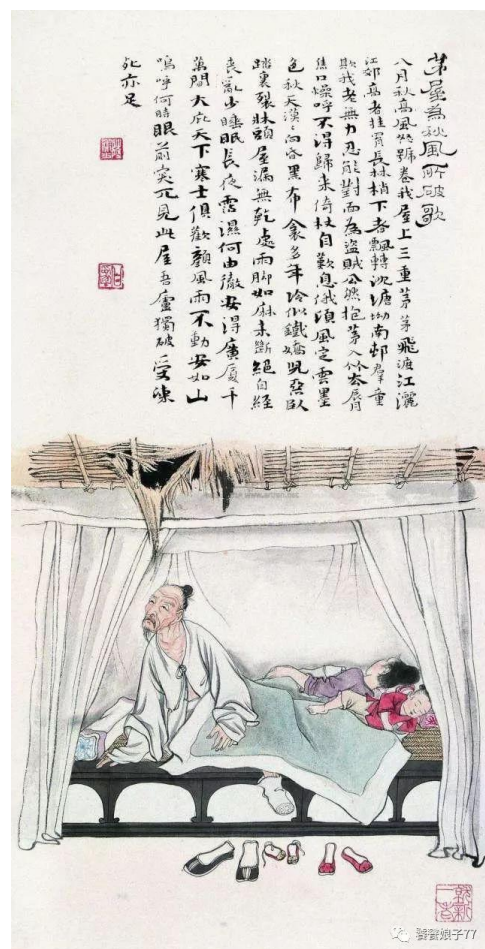 茅屋為秋風所破歌
八月秋高風怒號卷我屋上三重茅茅飛渡江灑
江郊高者挂罥長林梢下者飄轉沈塘坳南邨羣童
欺我老無力忍能對面為盜賊公然抱茅入竹去脣
焦口燥呼不得歸來倚杖自歎息俄頃風定雲墨
色秋天漠〻向昏黑布衾多年冷似鐵嬌兒惡臥
踏裏裂牀頭屋漏無乾處雨腳如麻未斷絕自經
喪亂少睡眠長夜霑濕何由徹安得廣廈千
萬間大庇天下寒士俱歡顏風雨不動安如山
嗚呼何時眼前突兀見此屋吾廬獨破受凍
死亦足
饕餮娘子77